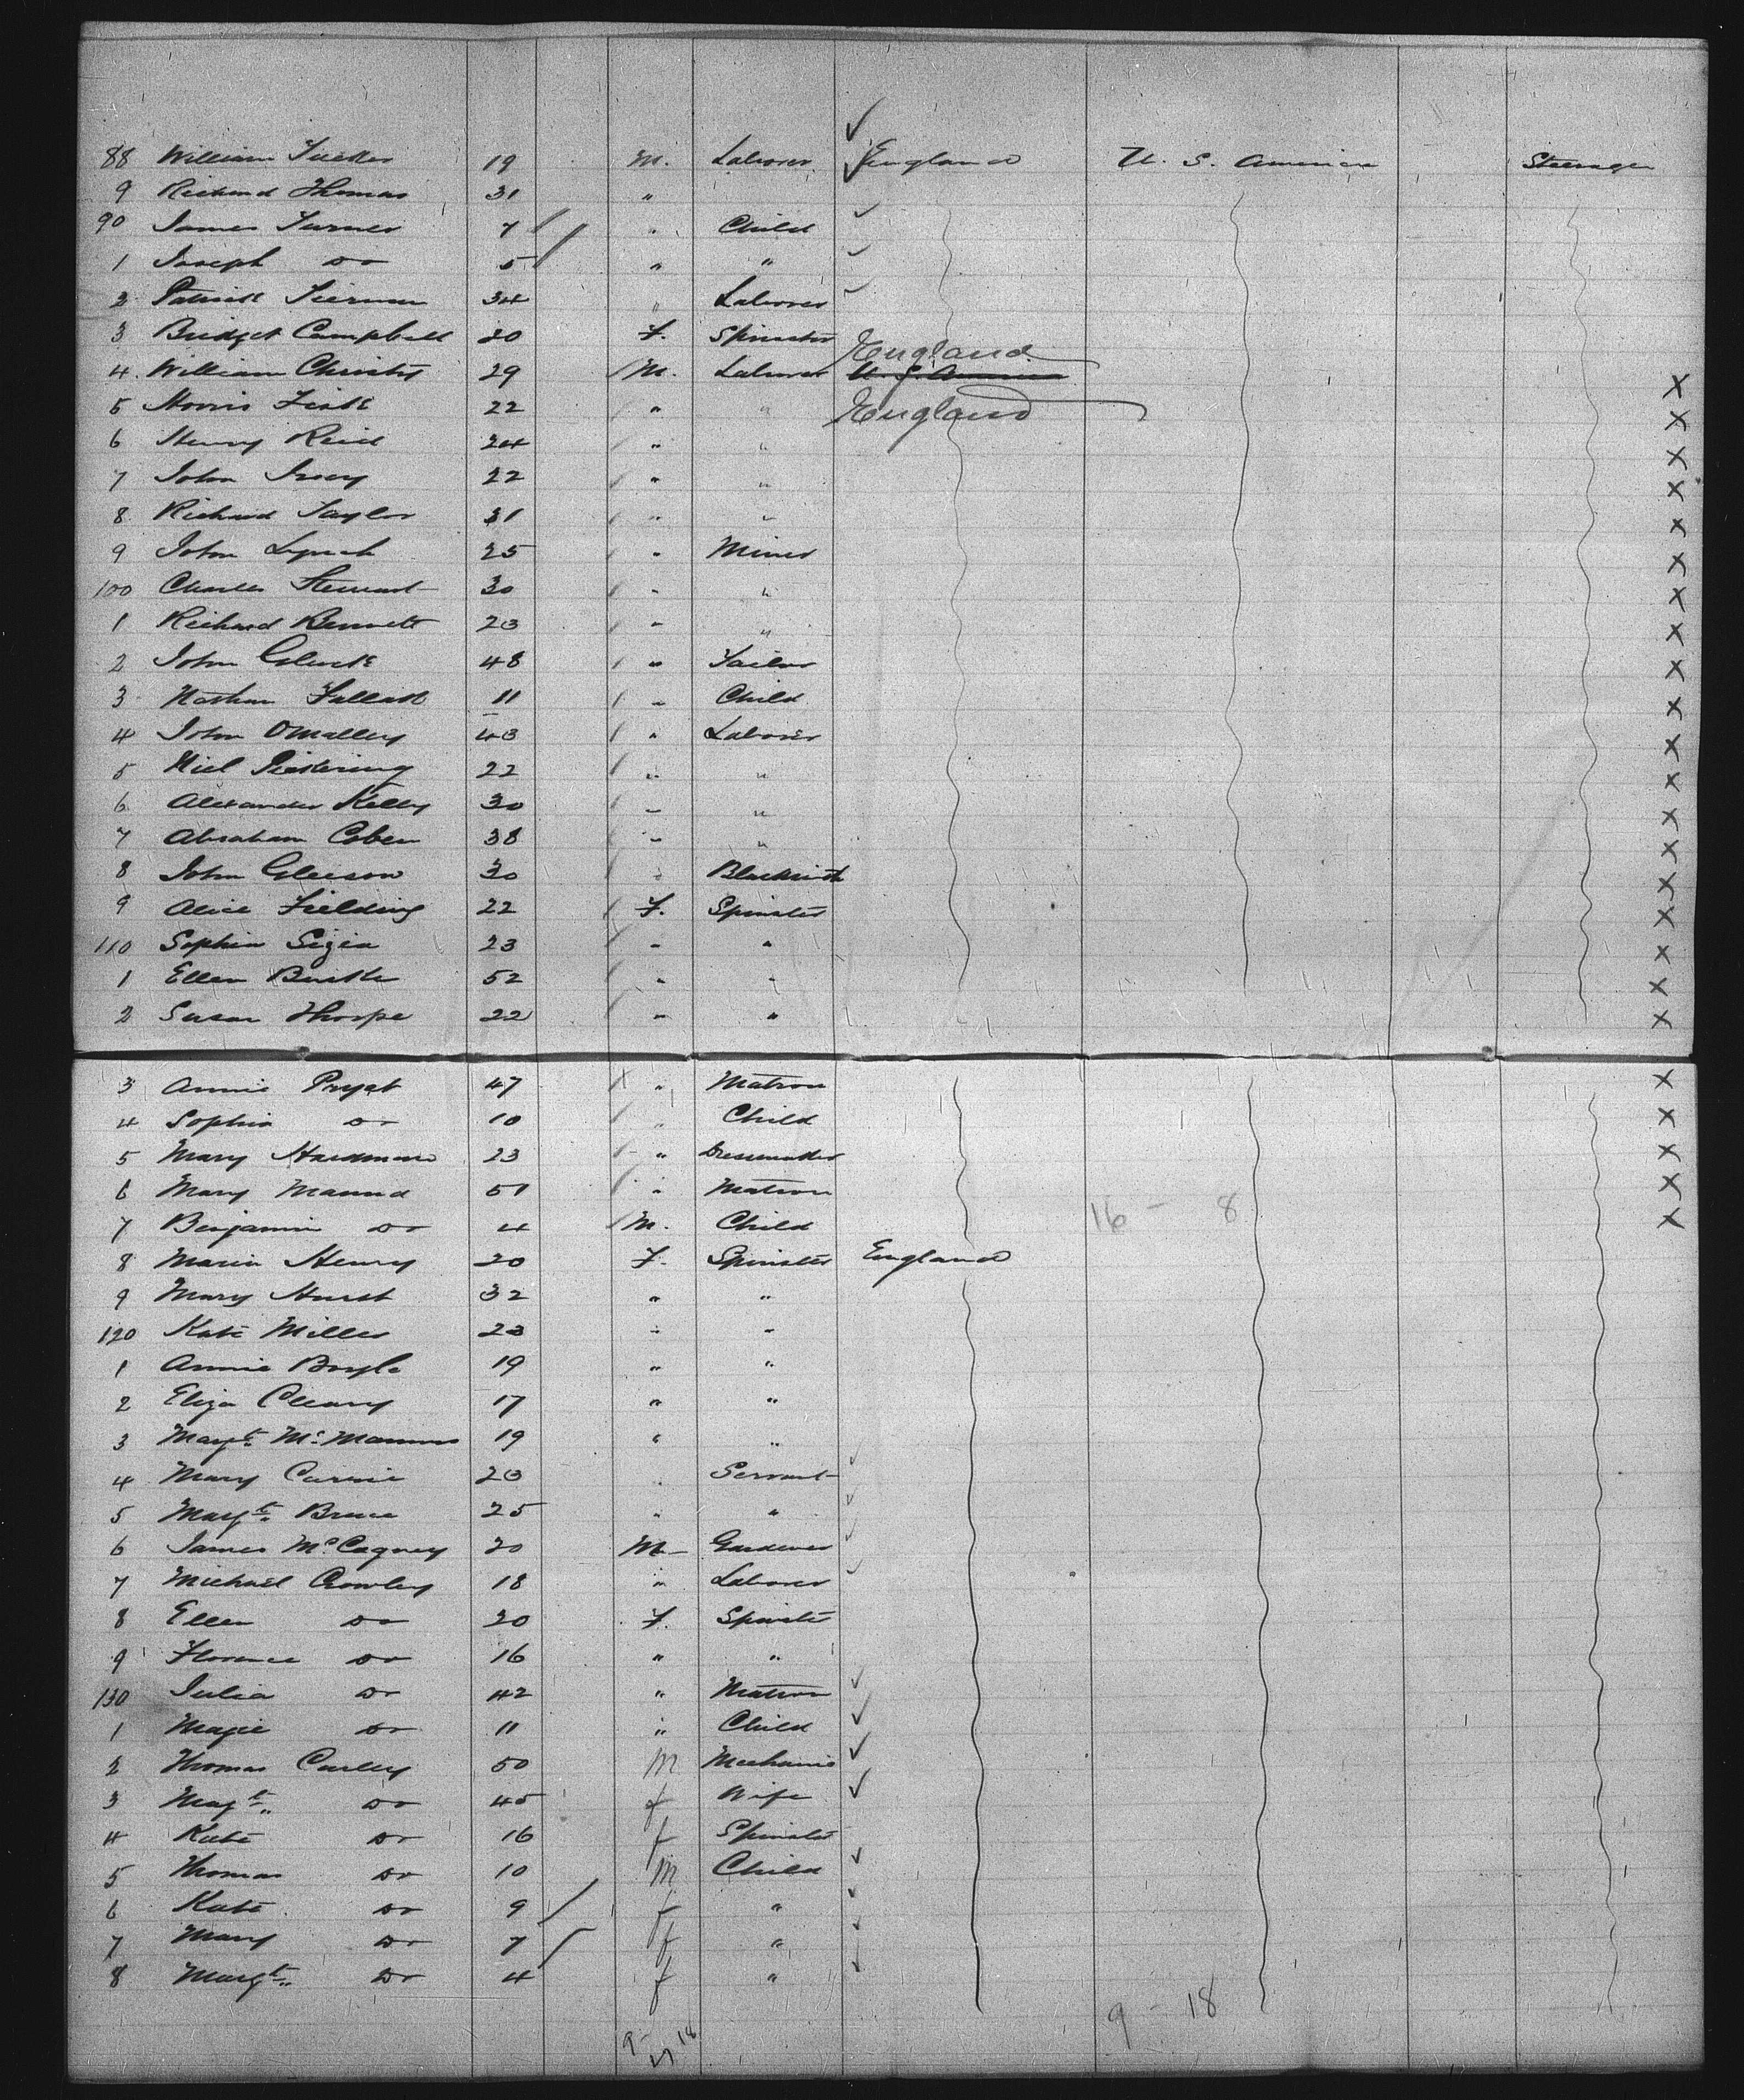 88 William Tucker 19 M. Laborer England U. S. America Steerage
9 Richard Thomas 31 "
90 James Turner 7 " Child
1 Joseph Do 5 " "
2 Patrick Tiernan 34 " Laborer
3 Bridget Campbell 20 F. Spinster England
4 William Christy 29 M. Laborer U. S. America
5 Morris 22 " " England
6 Henry Reid 24 " "
7 John 22 " "
8 Richard Taylor 31 " "
9 John Lynch 25 " Miner
100 Charles Stewart 30 " "
1 Richard Bennett 23 " "
2 John 48 " Tailor
3 Nathan 11 " Child
4 John O'Malley 43 " Laborer
5 Niel Pickering 22 " "
6 Alexander Kelly 30 " "
7 Abraham Cohen 38 " "
8 John Gleeson 30 " Blacksmith
9 Alice Fielding 22 F. Spinster
110 Sophia 23 " "
1 Ellen Burke 52 " "
2 Susan Thorpe 22 " "
3 Annie 47 " Matron
4 Sophia Do 10 " Child
5 Mary Hardman 23 " Dressmaker
6 Mary Maund 51 " Matron
7 Benjamin Do 4 M. Child 16 - 8
8 Maria Henry 20 F. Spinster England
9 Mary Hurst 32 " "
120 Kate Miller 23 " "
1 Annie Boyle 19 " "
2 Eliza Cleary 17 " "
3 Margt. McManus 19 " "
4 Mary 23 " Servant
5 Margt. Bruce 25 " "
6 James McCagney 20 M Gardener
7 Michael Crowley 18 " Laborer
8 Ellen Do 20 F. Spinster
9 Florence Do 16 " "
130 Julia Do 42 " Matron
1 Magie Do 11 " Child
2 Thomas Curley 50 M Mechanic
3 Magt. Do 45 f Wife
4 Kate Do 16 f Spinster
5 Thomas Do 10 M Child
6 Kate Do 9 f "
7 Mary Do 7 f "
8 Margt. Do 4 f "
9 - 18 9 - 18